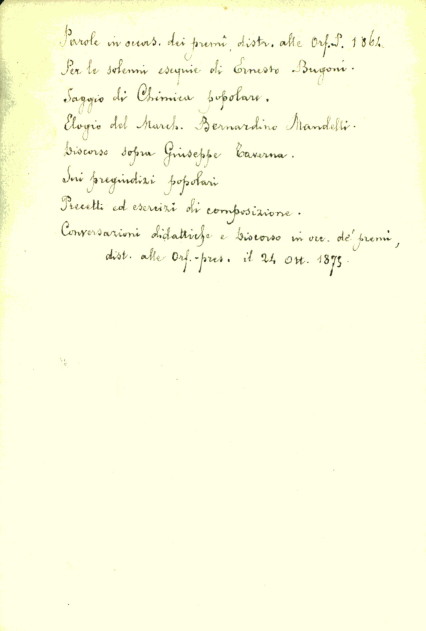 Parole in occas. dei premî, distr. alle Orf. P. 1864.
Per le solenni esequie di Ernesto Bugoni.
Saggio di Chimica popolare.
Elogio del March. Bernardino Mandelli.
Discorso sopra Giuseppe Taverna.
Sui pregiudizi popolari
Precetti ed esercizî di composizione.
Conversazioni didattiche e Discorso in occ. de' premî,
dist. alle Orf.-pres. il 24 Ott. 1875.